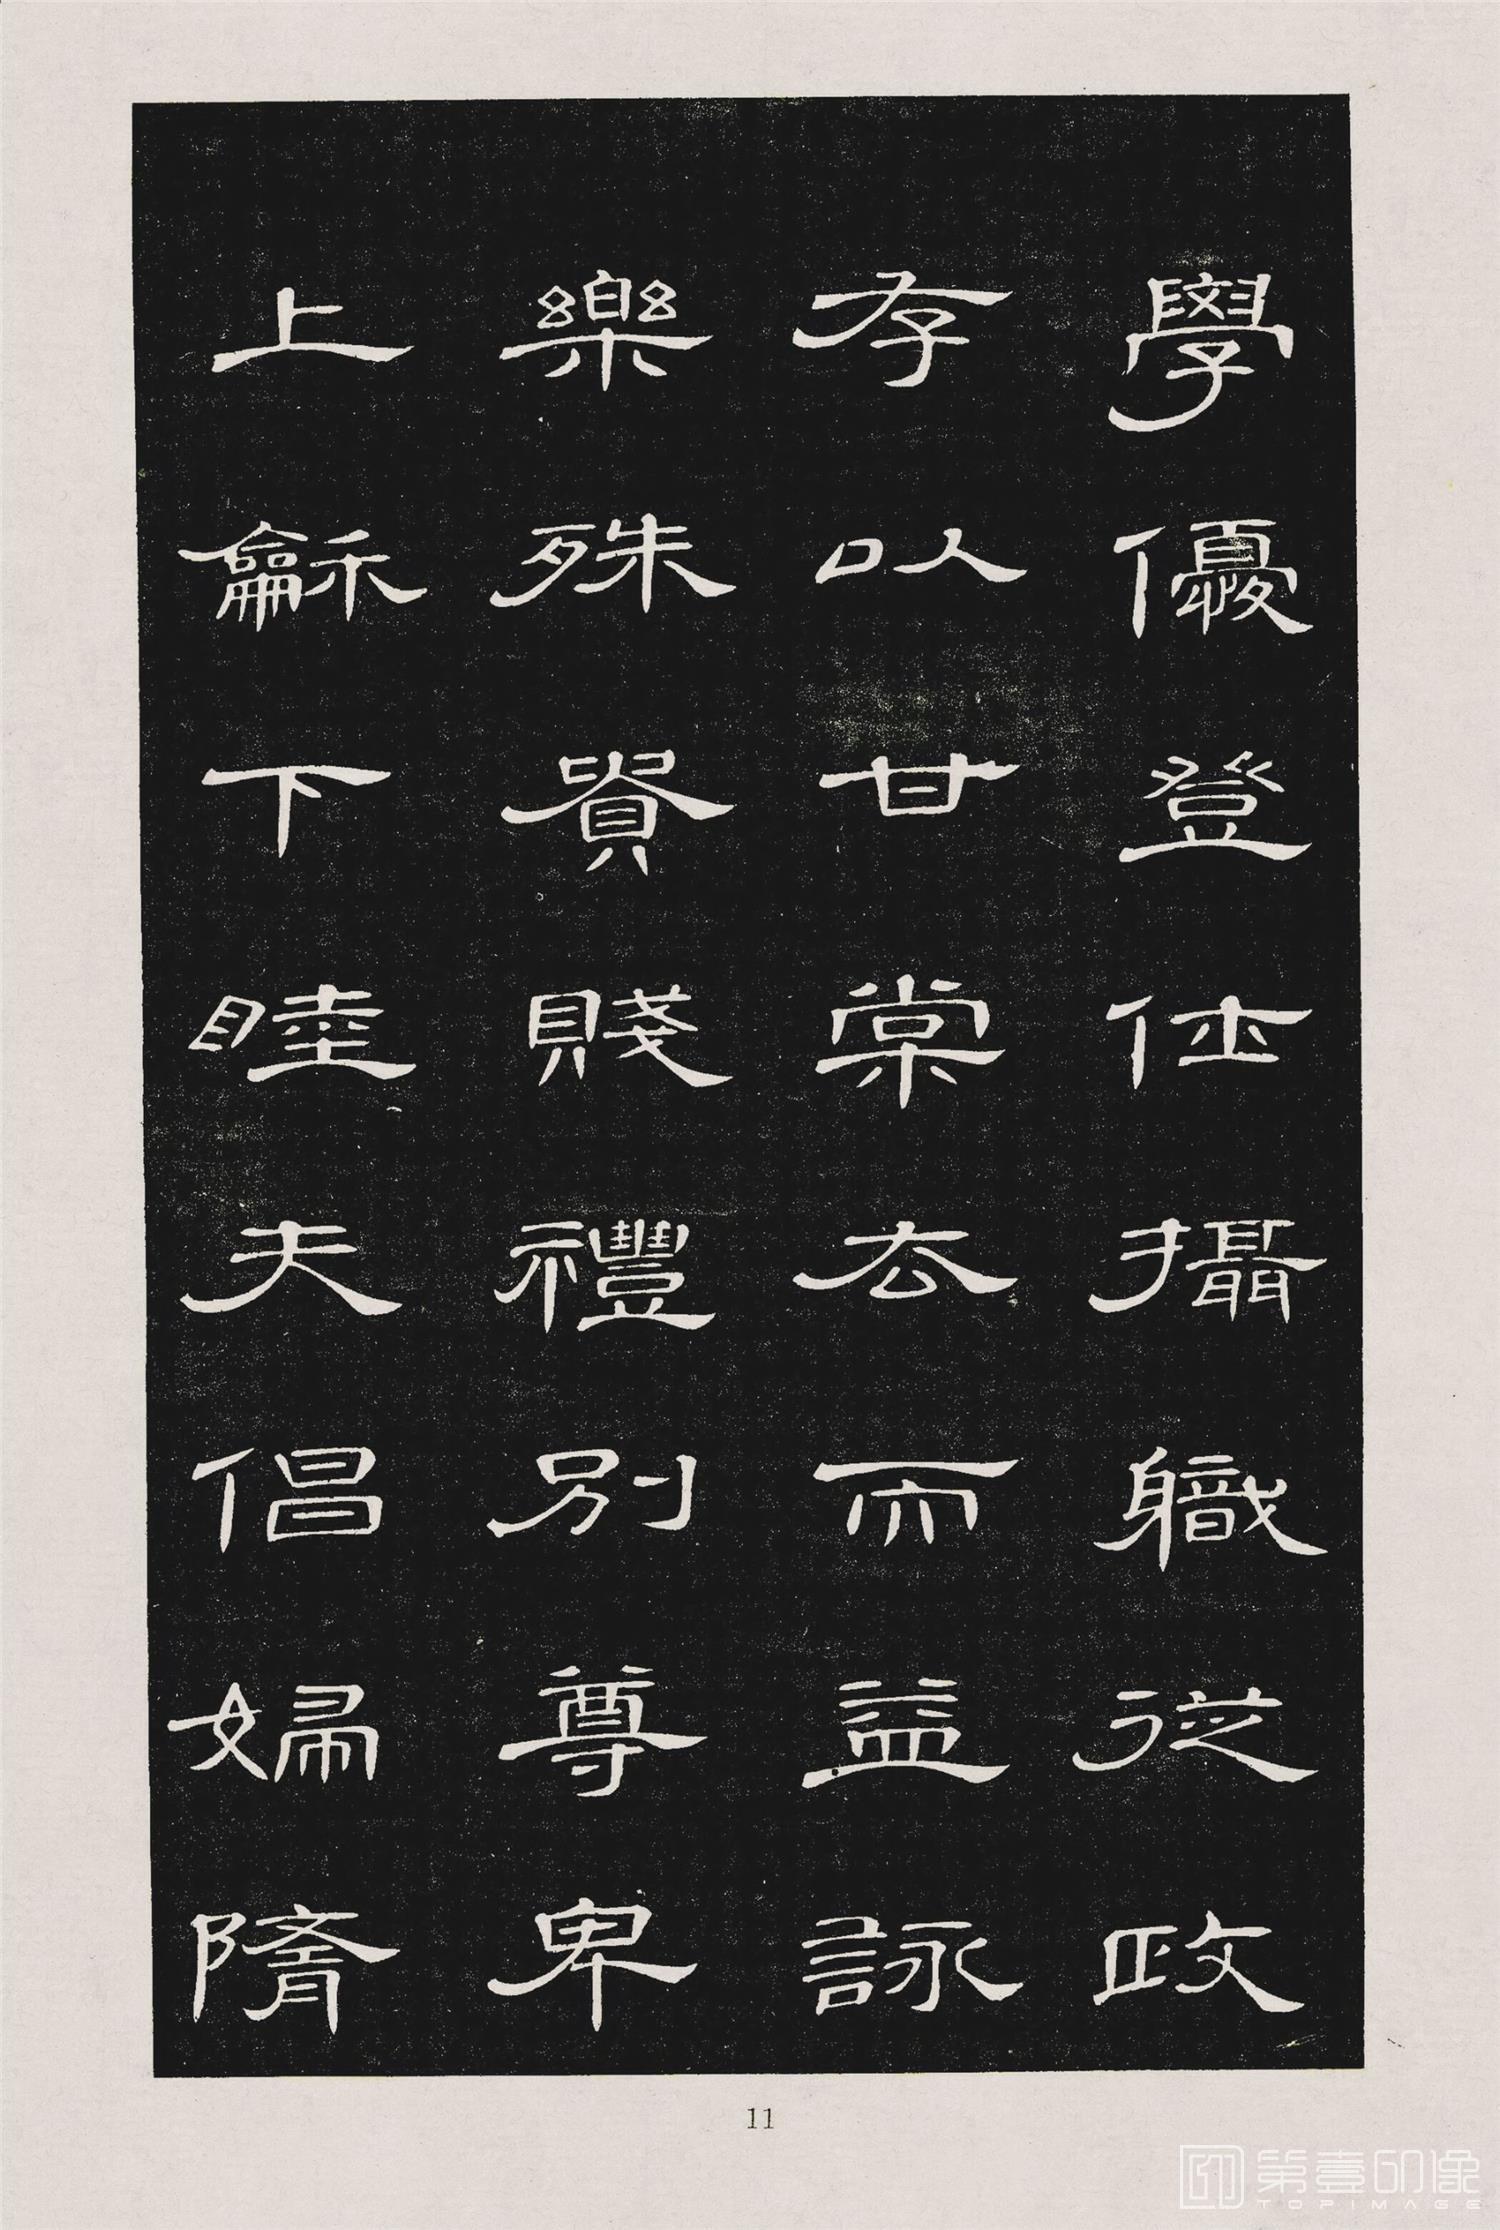 學優登仕攝職從政
存以甘棠去而益詠
樂殊貴賤禮別尊卑
上龢下睦夫倡婦隨
11
第壹印像
TOPIMAGE